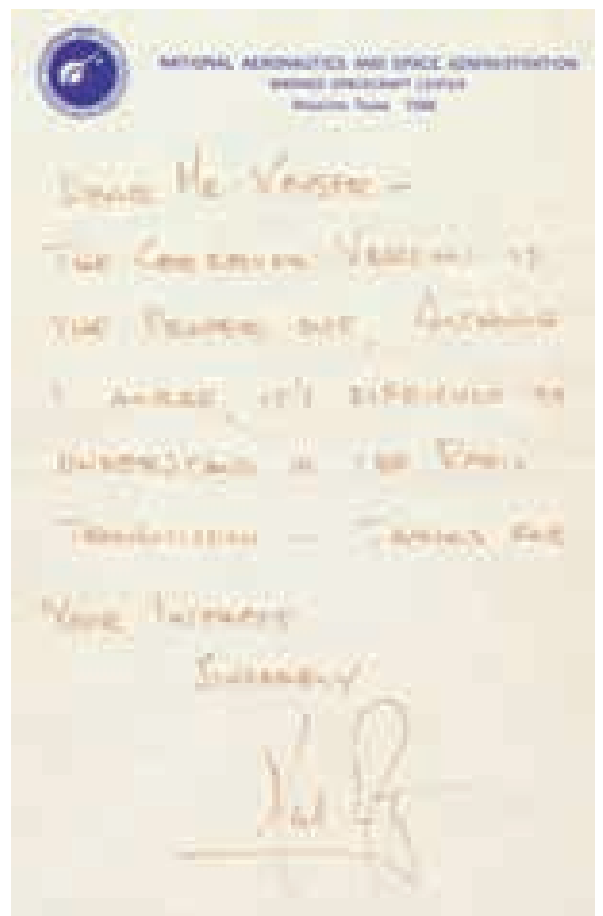 NATIONAL AERONAUTICS AND SPACE ADMINISTRATION
MANNED SPACECRAFT CENTER
HOUSTON, TEXAS
DEAR MR
THE VERSION IS
THE PROPER ONE, ALTHOUGH
I AGREE, IT'S DIFFICULT TO
UNDERSTAND IN THE RADIO
TRANSMISSION — THANKS FOR
YOUR INTEREST
SINCERELY